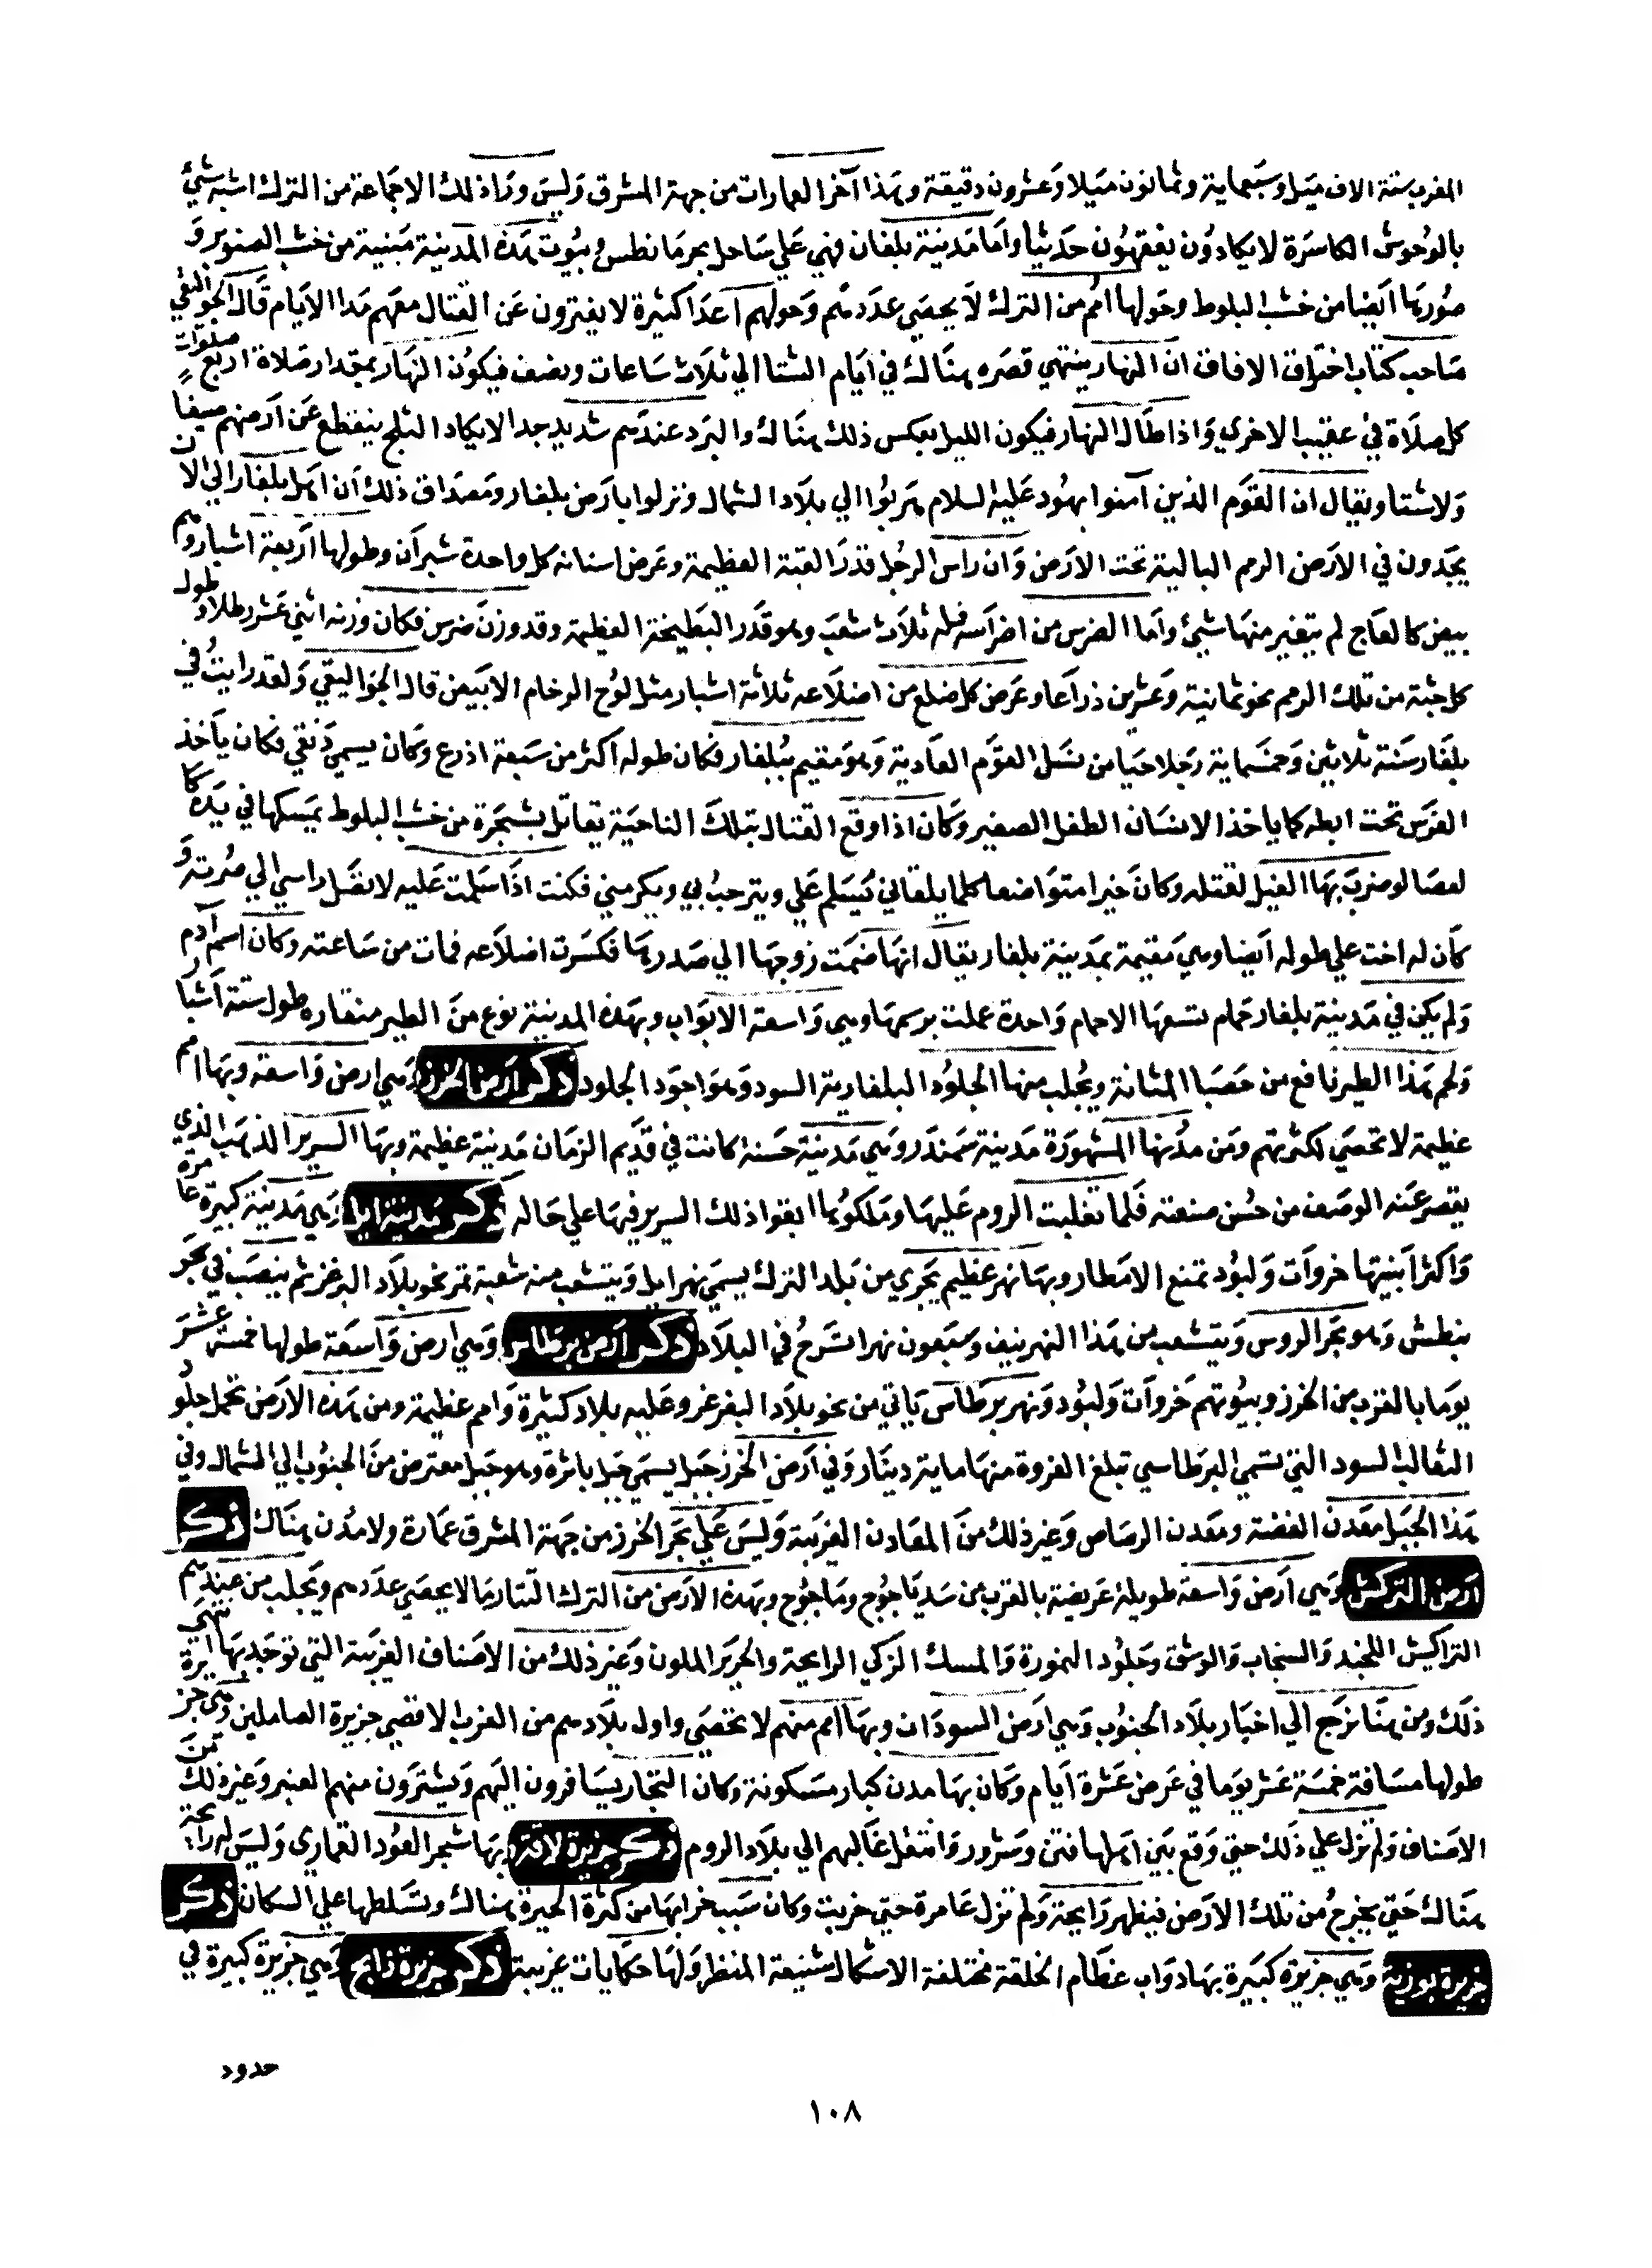 المغرب ستة الاف ميل وسبعماية وثمانون ميلا وعشرون دقيقة وهذا آخر العمارات من جهة المشرق وليس وراذلك الاجماعة من الترك اشبه شيئ
بالوحوش الكاسرة لايكادون يفقهون حديثا واما مدينة بلغان فهي علي ساحل بحرمانطس وبيوت هذه المدينة مبنية من خشب الصنوبر و
صورها ايضا من خشب البلوط وحولها امم من الترك لا يحصي عددهم وحولهم آعدا كثيرة لايفترون عن القتال معهم مدا الايام قال الجواليقي
صاحب كتاب اختراق الافاق ان النهار ينتهي قصره هناك في ايام الشتا الي ثلاث ساعات ونصف فيكون النهار بمقدار صلاة اربع صلوات
كل صلاة في عقيب الاخري واذا طال النهار فيكون الليل بعكس ذلك هناك والبرد عندهم شديد جدا لايكاد الثلج ينقطع عن آرضهم صيفا
ولاشتا ويقال ان القوم الذين آمنوا بهود عليه السلام هربوا الي بلاد الشمال ونزلوا بارض بلغار ومصداق ذلك ان اهل بلغار الي الان
يجدون في الارض الرمم البالية تحت الارض وان راس الرجل قدر القبة العظيمة وعرض اسنانه كل واحدة شبران وطولها اربعة اشبار وهم
بيض كالعاج لم يتغير منها شيئ واما الضرس من اضراسه فله ثلاث شعب وهو قدر البطيخة العظيمة وقد وزن ضرس فكان وزنه اثني عشر رطلا وطول
كل جثة من تلك الرمم نحو ثمانية وعشرين ذراعا وعرض كل ضلع من اضلاعه ثلاثة اشبار مثل لوح الرخام الابيض قال الجواليقي ولقد رايت في
بلغار سنة ثلاثين وخمسماية رجلا حيا من نسل القوم العادية وهو مقيم ببلغار فكان طوله اكثر من سبعة اذرع وكان يسمي دنقي فكان ياخذ
الفرس تحت ابطه كما ياخذ الانسان الطفل الصغير وكان اذا وقع القتال بتلك الناحية يقاتل بشجرة من خشب البلوط يمسكها في يده كا
لعصا لو ضرب بها الفيل لقتله وكان خيرا متواضعا كلما يلقاني يسلم علي ويترحب بي ويكرمني فكنت اذا سلمت عليه لايصل راسي الي صرته و
كان له اخت علي طوله ايضا وهي مقيمة بمدينة بلغار يقال انها ضمت زوجها الي صدرها فكسرت اضلاعه فمات من ساعته وكان اسم آدم
ولم يكن في مدينة بلغار حمام تسعها الاحمام واحدة عملت برسمها وهي واسعة الابواب وبهذه المدينة نوع من الطير منقاره طول ستة آشبار
ولحم هذا الطير نافع من حصبا المثانة ويجلب منها الجلود البلغارية السود وهو اجود الجلود ذكر ارض الخزر وهي ارض واسعة وبها امم
عظيمة لاتحصي لكثرتهم ومن مدنها المشهورة مدينة سمندر وهي مدينة حسنة كانت في قديم الزمان مدينة عظيمة وبها السرير الذهب الذي
يقصر عنه الوصف من حسن صنعته فلما تغلبت الروم عليها وملكوها ابقوا ذلك السرير فيها علي حاله ذكر مدينة ايل وهي مدينة كبيرة عامرة
واكثر آبنيتها خروآت ولبود تمنع الامطار وبها نهر عظيم يجري من بلد الترك يسمي نهر ايل ويتشعب منه شعبة تمر نحو بلاد البغرغز ثم ينصب في بحر
بنطش وهو بحر الروس ويتشعب من هذا النهر نيف وسبعون نهرا تسرح في البلاد ذكر ارض برطاس وهي ارض واسعة طولها خمسة عشر
يوما بالقرب من الخزر وبيوتهم خروآت ولبود ونهر برطاس ياتي من نحو بلاد البغرغر وعليه بلاد كثيرة وامم عظيمة ومن هذه الارض تحمل جلود
الثعالب السود التي تسمي البرطاسي تبلغ الفروة منها ماية دينار وفي ارض الخزر جبل يسمي جبل باثرة وهو جبل معترض من الجنوب الي الشمال وفي
هذا الجبل معدن الفضة ومعدن الرصاص وغير ذلك من المعادن الغريبة وليس علي بحر الخزر من جهة المشرق عمارة ولامدن هناك ذكر
ارض التركش وهي آرض واسعة طويلة عريضة بالقرب من سد ياجوج وماجوج وبهذه الارض من الترك التتار ما لايحصي عددهم ويجلب من عندهم
التراكيش اللجند والسنجاب والوشق وجلود النمورة والمسك الزكي الرايحة والحرير الملون وغير ذلك من الاصناف الغريبة التي توجد بها انتهي
ذلك ومن هنا نرجع الي اخبار بلاد الجنوب وهي ارض السودان وبها امم منهم لاتحصي واول بلادهم من الغرب الاقصي جزيرة العاملين وهي جزيرة
طولها مسافة خمسة عشر يوما في عرض عشرة ايام وكان بها مدن كبار مسكونة وكان التجار يسافرون اليهم ويشترون منهم العنبر وغير ذلك من
الاصناف ولم تزل علي ذلك حتي وقع بين اهلها فتن وسرور وانتقل غالبهم الي بلاد الروم ذكر جزيرة بها شجر العود القماري وليس له رايحة
هناك حتي يخرج من تلك الارض فيظهر رايحته ولم تزل عامرة حتي خربت وكان سبب خرابها من كثرة الحيرة هناك وتسلطها علي السكان ذكر
جزيرة وهي جزيرة كبيرة بها دواب عظام الخلقة مختلفة الاشكال شنيعة المنظر ولها حكايات غريبة ذكر جزيرة وهي جزيرة كبيرة في
حدود
١٠٨